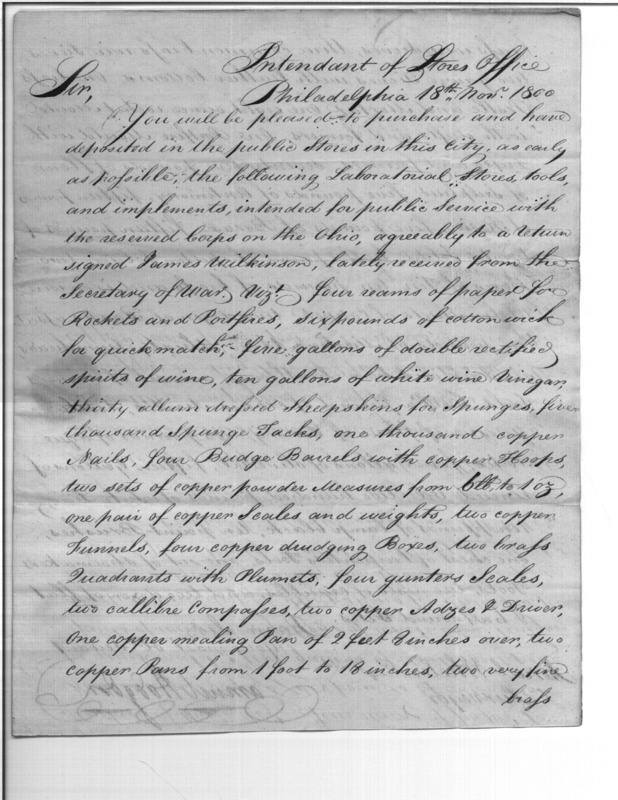 Intendant of Stores Office
Sir, Philadelphia 18th. Novr. 1800
You will be pleased to purchase and have
deposited in the public Stores in this City, as early
as possible, the following Laboratorial Stores, tools,
and implements, intended for public Service with
the reserved Corps on the Ohio, agreeably to a return
signed James Wilkinson, lately received from the
Secretary of War, Vizt. four reams of paper for
Rockets and Portfires, six pounds of cotton wick
for quick match, five gallons of double rectified
spirits of wine, ten gallons of white wine Vinegar,
thirty allum dressed Sheepskins for Spunges, five
thousand Spunge Tacks, one thousand copper
Nails, four Budge Barrels with copper Hoops,
two sets of copper powder Measures from 6lb. to 1 oz,
one pair of copper Scales and weights, two copper
Funnels, four copper drudging Boxes, two brass
Quadrants with Plumets, four gunters Scales,
two callibre Compasses, two copper Adzes & Driver,
one copper mealing Pan of 2 feet 8 inches over, two
copper Pans from 1 foot to 18 inches, two very fine
brass